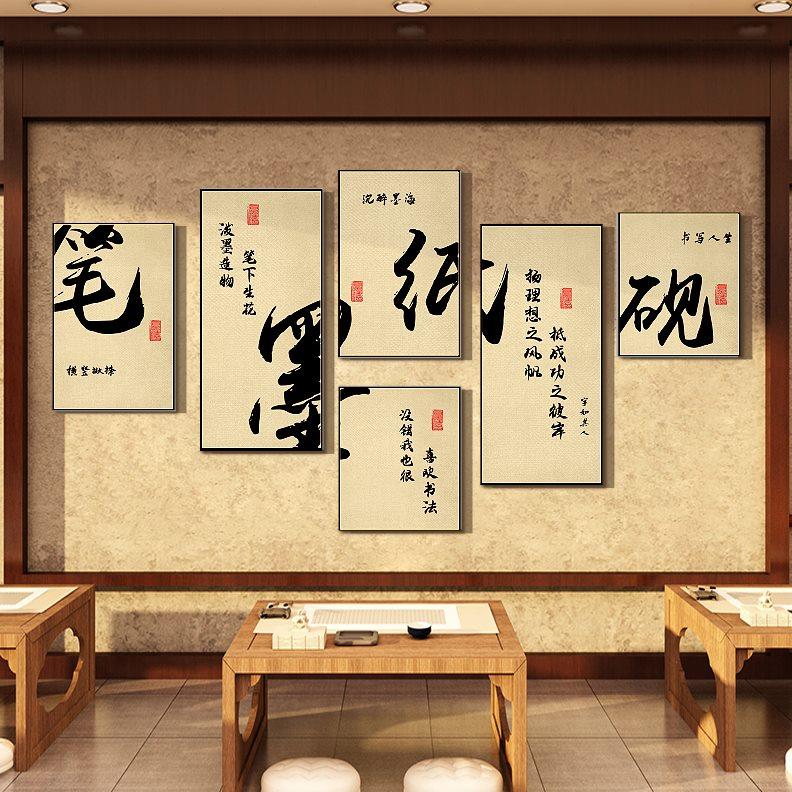 笔
横竖撇捺
泼墨造物
笔下生花
墨
沉醉墨海
纸
没错我也很
喜欢书法
扬理想之风帆
抵成功之彼岸
字如其人
书写人生
砚